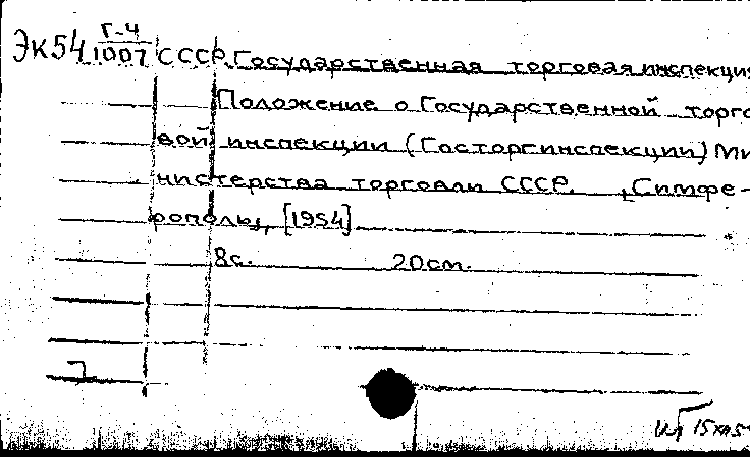 Г-4
Эк54 1007 СССР. Государственная торговая инспекция
Положение о Государственной торго
вой инспекции (Госторгинспекции) Ми
нистерства торговли СССР. [Симфе-
рополь], [1954]
8с. 20см.